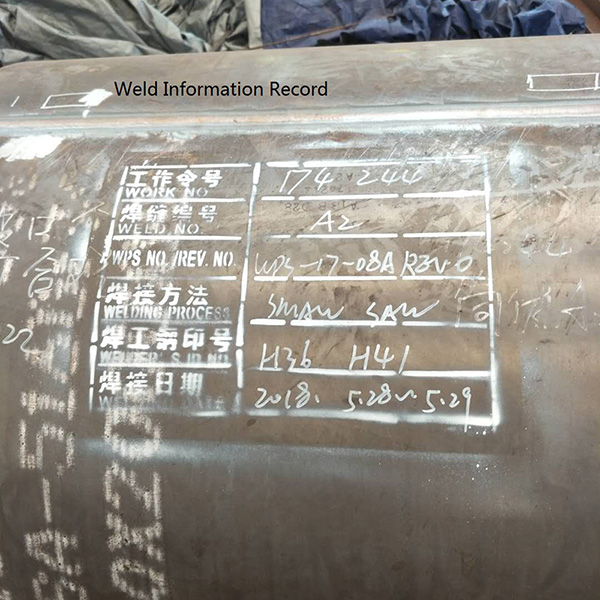 Weld Information Record
工作令号 174 244
WORK NO.
焊缝编号 A2
WELD NO.
WPS NO. /REV. NO. WPS-17-08A REV-0
焊接方法 SMAW SAW
WELDING PROCESS
焊工钢印号 H36 H41
WELDER'S ID NO.
焊接日期 2018. 5.28~5.29
WELDING DATE
SA-51
0X20